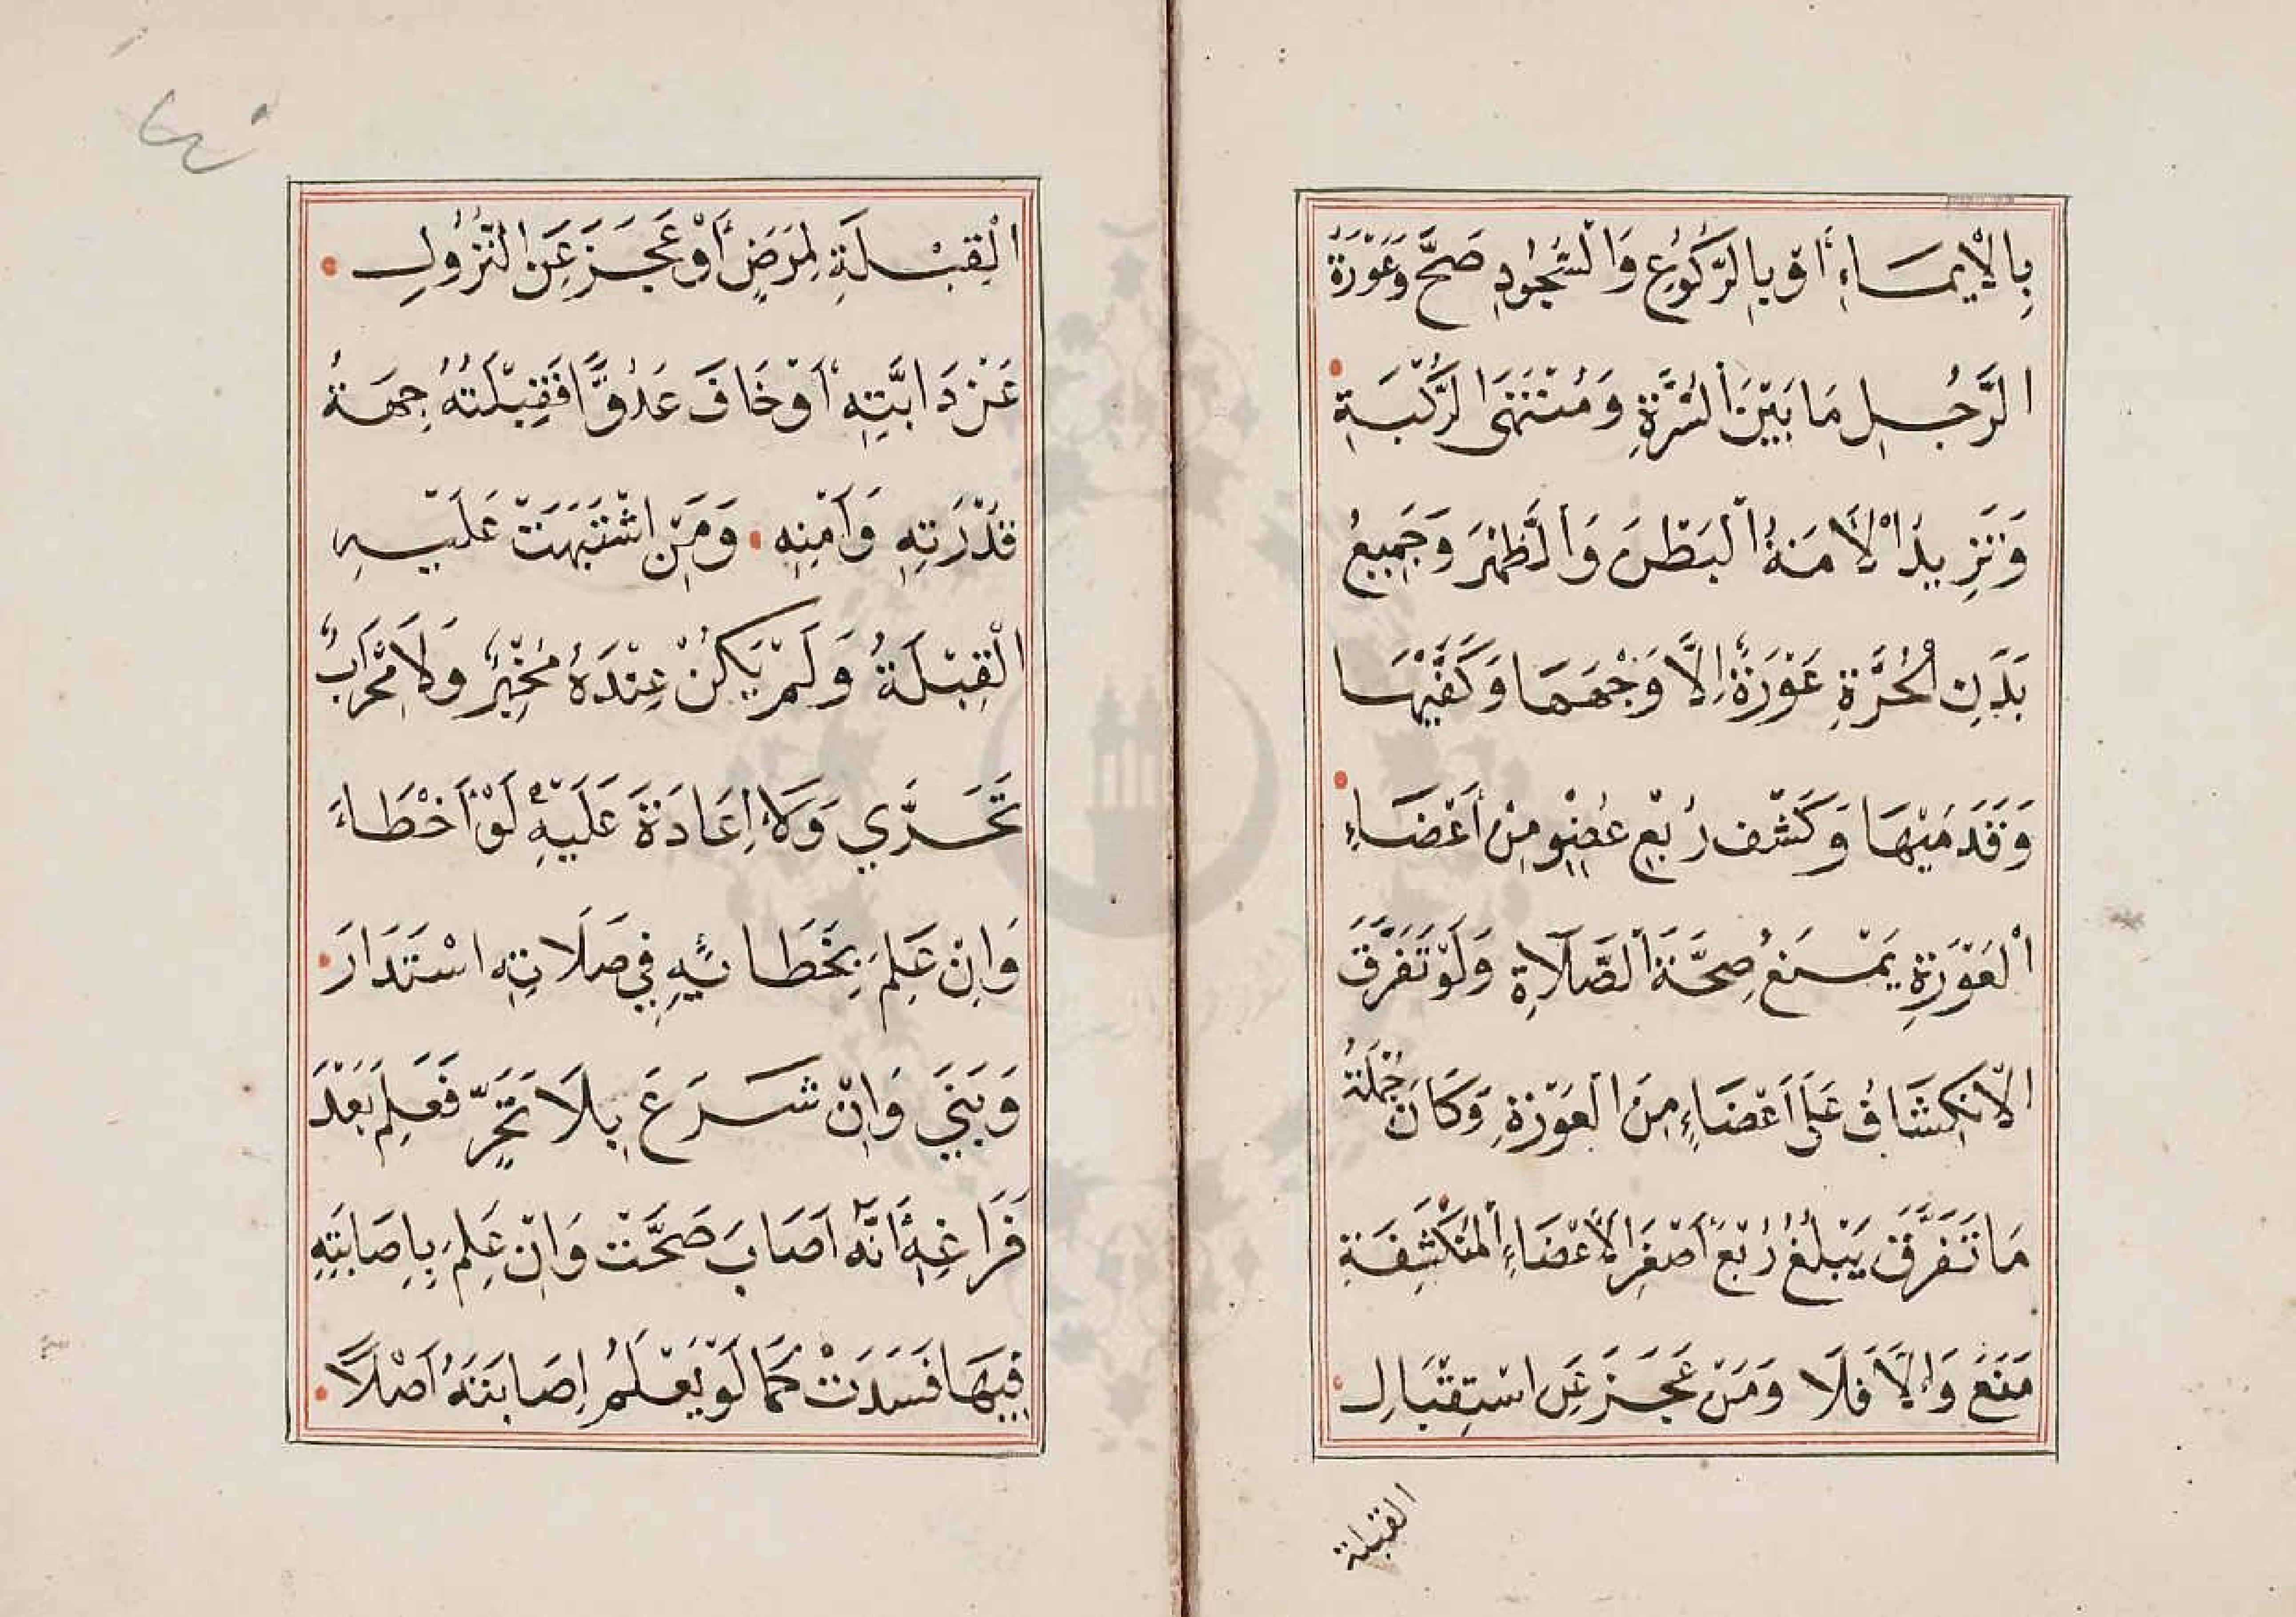 بِالْإِيمَاءِ أَوْ بِالرُّكُوعِ وَالسُّجُودِ صَحَّ وَعَوْرَةُ
الرَّجُلِ مَا بَيْنَ السُّرَّةِ وَمُنْتَهَى الرُّكْبَةِ
وَتَزِيدُ الْأَمَةُ الْبَطْنَ وَالظَّهْرَ وَجَمِيعُ
بَدَنِ الْحُرَّةِ عَوْرَةٌ إِلَّا وَجْهَهَا وَكَفَّيْهَا
وَقَدَمَيْهَا وَكَشْفُ رُبْعِ عُضْوٍ مِنْ أَعْضَاءِ
الْعَوْرَةِ يَمْنَعُ صِحَّةَ الصَّلَاةِ وَلَوْ تَفَرَّقَ
الْاِنْكِشَافُ عَلَى أَعْضَاءٍ مِنَ الْعَوْرَةِ وَكَانَ جُمْلَةُ
مَا تَفَرَّقَ يَبْلُغُ رُبْعَ أَصْغَرِ الْأَعْضَاءِ الْمُنْكَشِفَةِ
مَنَعَ وَإِلَّا فَلَا وَمَنْ عَجَزَ عَنِ اسْتِقْبَالِ
القبلة
الْقِبْلَةِ لِمَرَضٍ أَوْ عَجَزَ عَنِ النُّزُولِ
عَنْ دَابَّتِهِ أَوْ خَافَ عَدُوًّا فَقِبْلَتُهُ جِهَةُ
قُدْرَتِهِ وَأَمْنِهِ وَمَنِ اشْتَبَهَتْ عَلَيْهِ
الْقِبْلَةُ وَلَمْ يَكُنْ عِنْدَهُ مُخْبِرٌ وَلَا مِحْرَابٌ
تَحَرَّي وَلَا إِعَادَةَ عَلَيْهِ لَوْ أَخْطَاءَ
وَإِنْ عَلِمَ بِخَطَائِهِ فِي صَلَاتِهِ اسْتَدَارَ
وَبَنَي وَإِنْ شَرَعَ بِلَا تَحَرٍّ فَعَلِمَ بَعْدَ
فَرَاغِهِ أَنَّهُ أَصَابَ صَحَّتْ وَإِنْ عَلِمَ بِإِصَابَتِهِ
فِيهَا فَسَدَتْ كَمَا لَوْ يَعْلَمُ إِصَابَتَهُ أَصْلًا